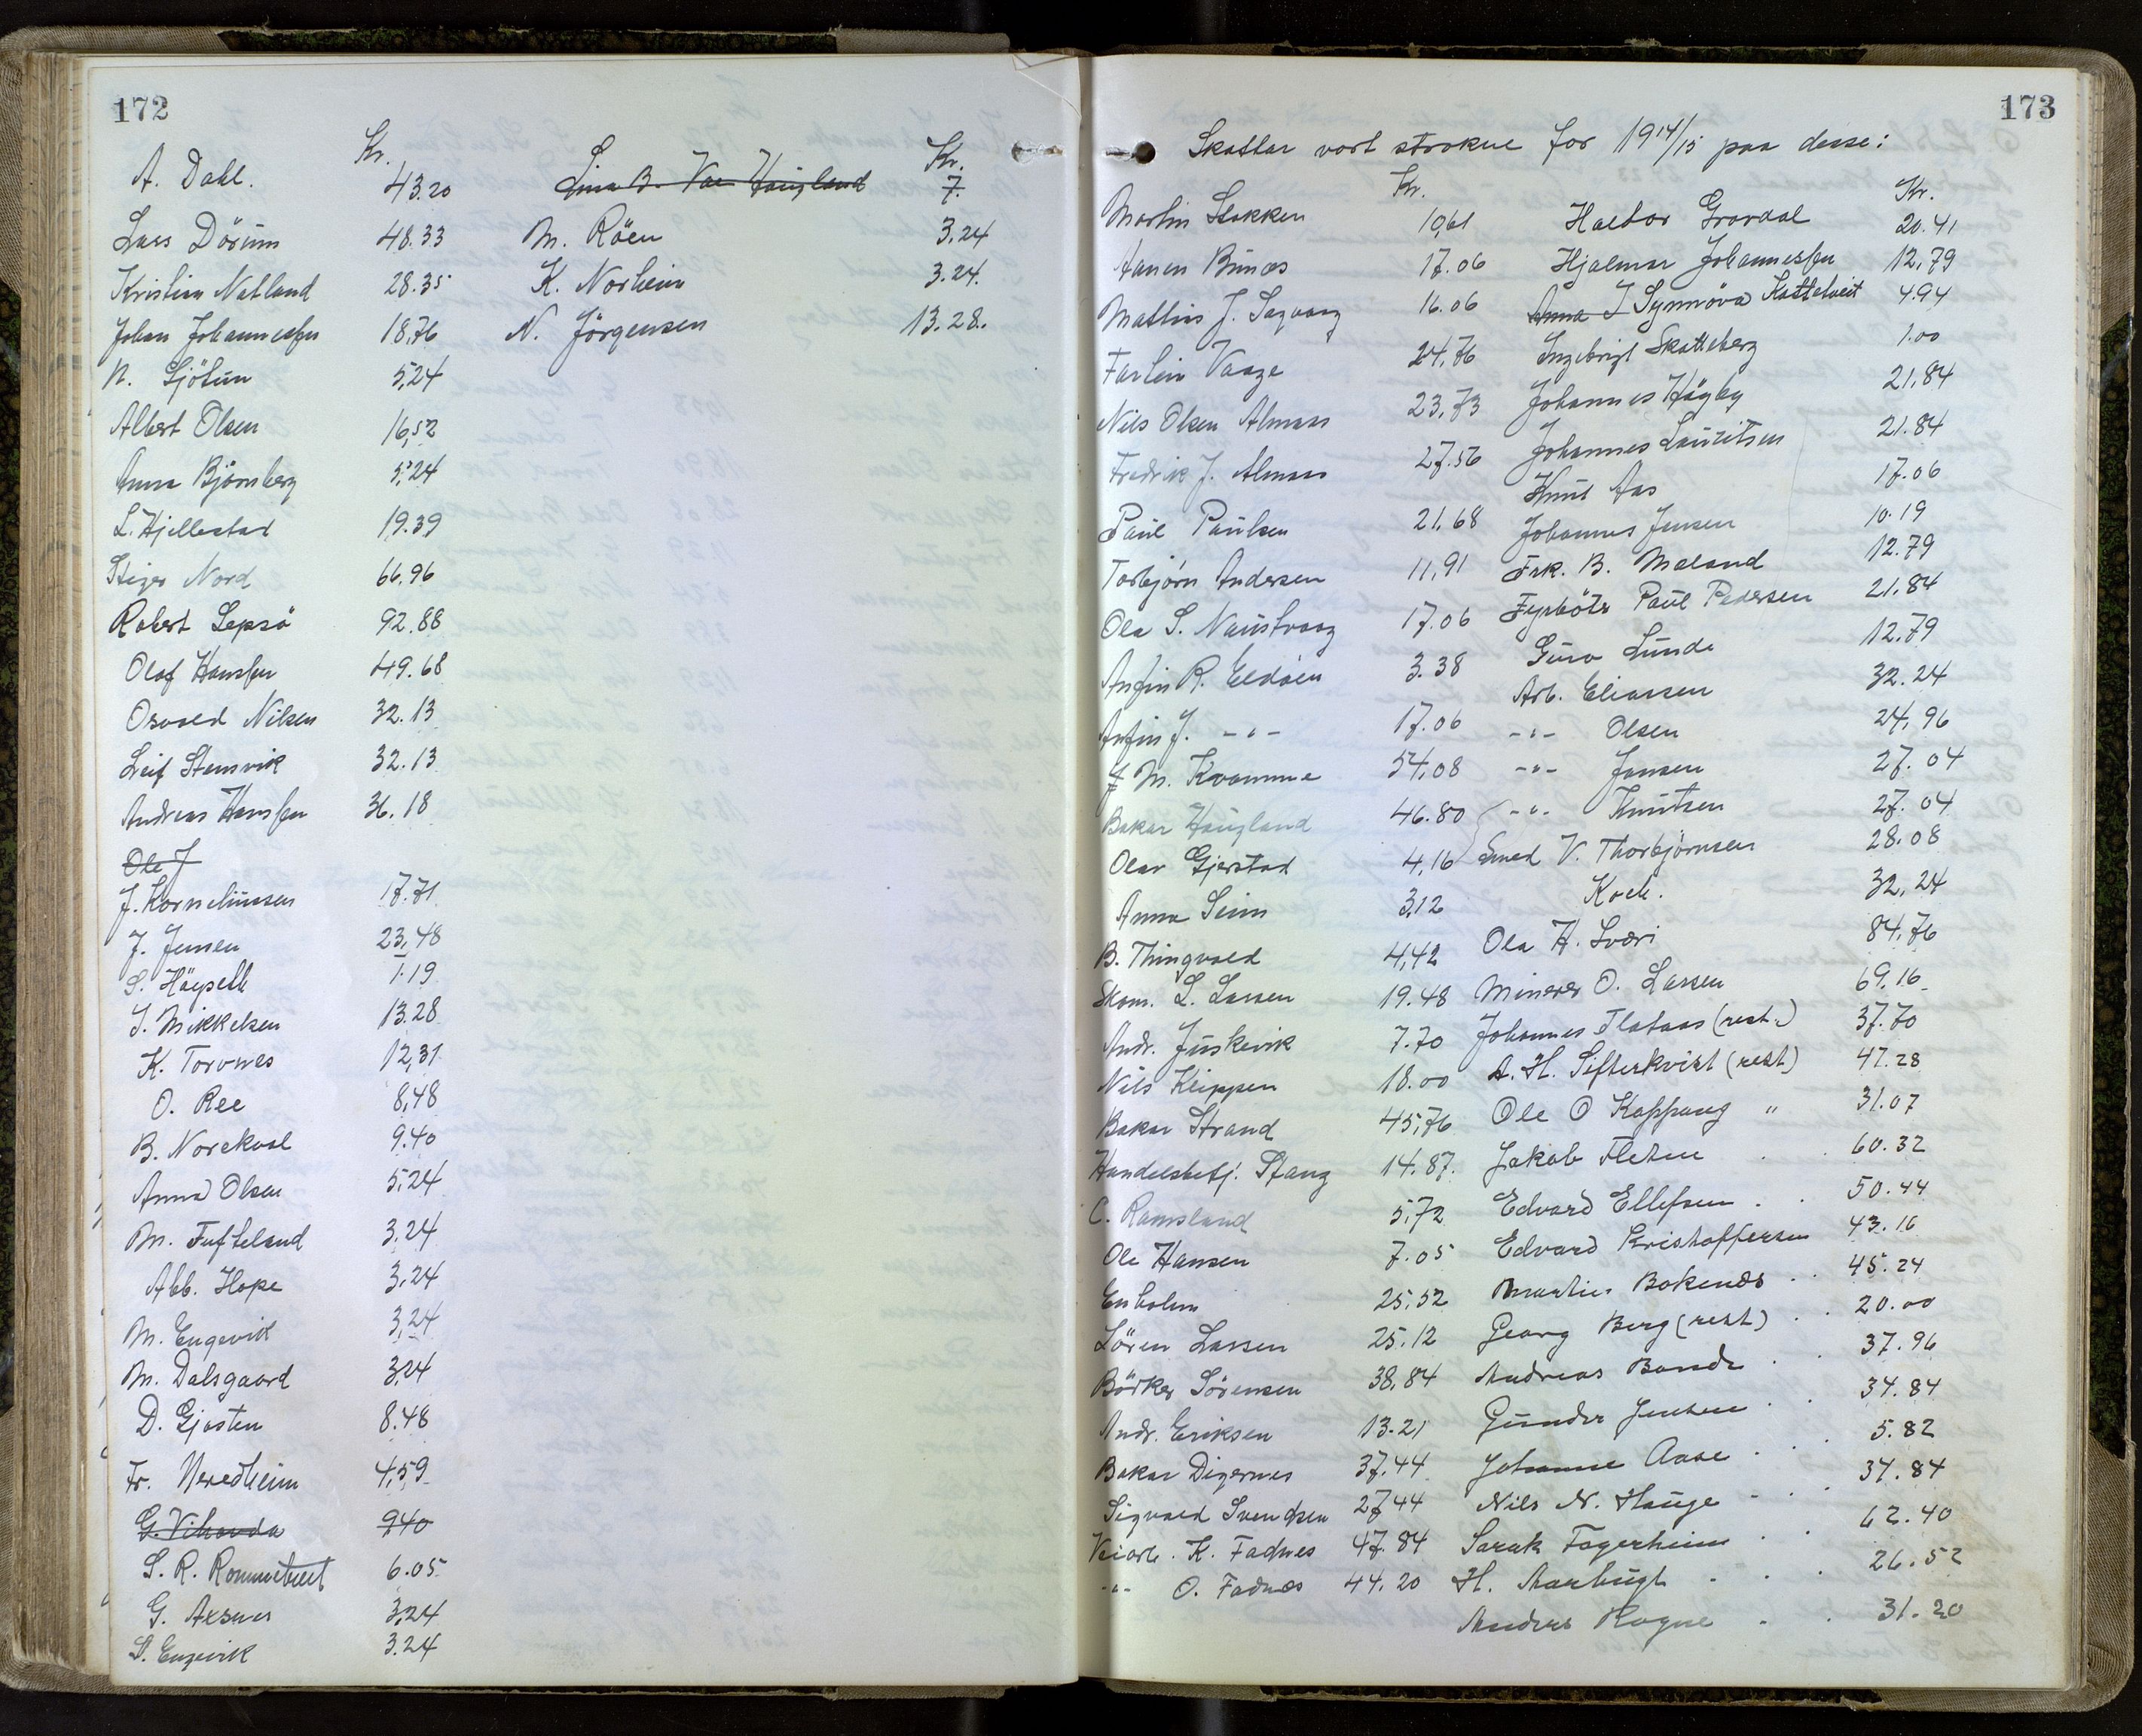 172
Kr. Kr.
A. Dahl. 43.20
Lars Dörum 48.33
Kristian Natland 28.35
Johan Johannessen 18,76
N. Sjötun 5,24
Albert Olsen 16,52
Anna Björnsberg 5,24
L. Hjellestad 19.39
Steiger Nord 66.96
Robert Lepsö 92.88
Olaf Hanssen 49.68
Osvald Nilsen 32.13
Leif Stensvik 32.13
Andreas Hanssen 36.18
Ole J
J. Korneliussen 17.71
J. Jensen 23,48
S. Höyseth 1.19
J. Mikkelsen 13.28
K. Torvnes 12,31
O. Ree 8,48
B. Norekval 9.40
Anna Olsen 5,24
M. Tufteland 3.24
Abb. Hope 3,24
M. Engevik 3,24
M. Dalsgaard 3,24
D. Gjosten 8.48
Fr. Neredheim 4,59
G. Vikanda 9,40
S. R. Rommetveit 6.05
G. Axsnes 3,24
S. Engevik 3.24
Lina B. Vae Haugland 7.
M. Röen 3.24
K. Norheim 3.24.
N. Jörgensen 13.28.
173
Skattar vort strokne for 1914/15 paa desse:
Kr. Kr.
Martin Stokken 10,61
Aanen Bunæs 17.06
Mathias J. Sagvaag 16.06
Farlein Vaage 24,76
Nils Olsen Almaas 23,73
Fredrik J. Almaas 27.56
Paul Paulsen 21,68
Torbjörn Andersen 11,91
Ola S. Naustvaag 17.06
Anfin R. Eldöen 3.38
Anfin J. -"- 17.06
J M. Kvamme 54,08
Bakar Haugland 46.80
Olav Gjerstad 4,16
Anna Seim 3,12
B. Thingvold 4,42
Skom. L. Larsen 19.48
Andr. Juskevik 7.70
Nils Kleppen 18.00
Bakar Strand 45,76
Handelsbetj. Stang 14.87.
C. Ramsland 5,72
Ole Hansen 7.05
Enholm 25,52
Sören Larsen 25.12
Börker Sörensen 38,84
Andr. Eriksen 13.21
Bakar Digernes 37,44
Sigvald Svendsen 27,44
Veiarb. K. Fadnes 47.84
-"- O. Fadnes 44.20
Halvor Gravdal 20.41
Hjalmar Johannessen 12,79
Anna I Synnöva Kattetveit 4.94
Ingebrigt Skatteberg 1.00
Johannes Högby 21,84
Johannes Lauritsen 21.84
Knut Aas 17.06
Johannes Jensen 10.19
Frk. B. Meland 12.79
Fyrböter Paul Pedersen 21,84
Guro Lunde 12.79
Arb. Eliassen 32.24
-"- Olsen 24,96
-"- Jansen 27.04
-"- Knutsen 27.04
Smed V. Thorbjörnsen 28.08
Koch. 32,24
Ola H. Sværi 84,76
Minerer O. Larsen 69.16
Johannes Flataas (rest.) 37.70
A. H. Sifterkvist (rest) 47.28
Ole O Kappang " 31.07
Jakob Fleten 60.32
Edvard Ellefsen 50.44
Edvard Kristoffersen 43.16
Martin Bokenes 45.24
Georg Berg (rest) 20.00
Andreas Bonde 37.96
Gunder Jensen 34.84
Johanne Aase 5.82
Nils N. Hauge 34.84
Sarak Fagerheim 62.40
H. 26.52
Anders Rogne 31.20